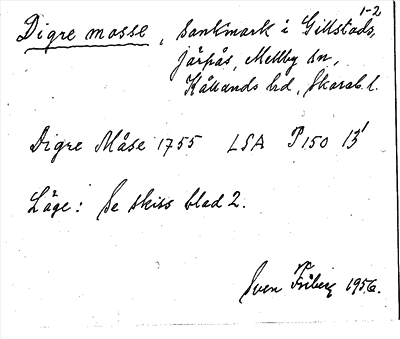 1-2
Digre mosse, sankmark i Gillstads,
Järpås, Mellby sn,
Kållands hd, Skarab. l.
Digre Måse 1755 LSA P150 13¹
Läge: Se skiss blad 2.
Sven Friberg 1956.